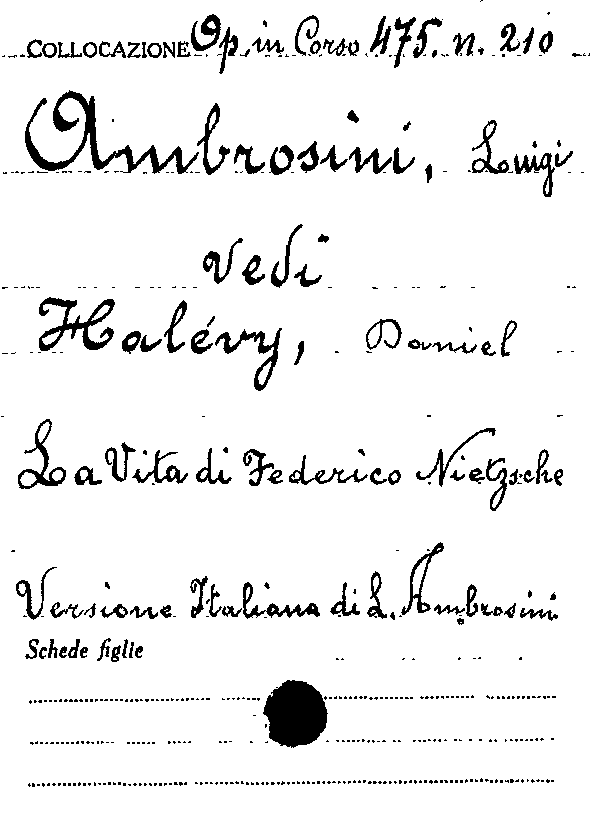 COLLOCAZIONE Op. in Corso 475. n. 210
Ambrosini, Luigi
Vedi
Halévy, Daniel
La Vita di Federico Nietzsche
Versione Italiana di L. Ambrosini
Schede figlie